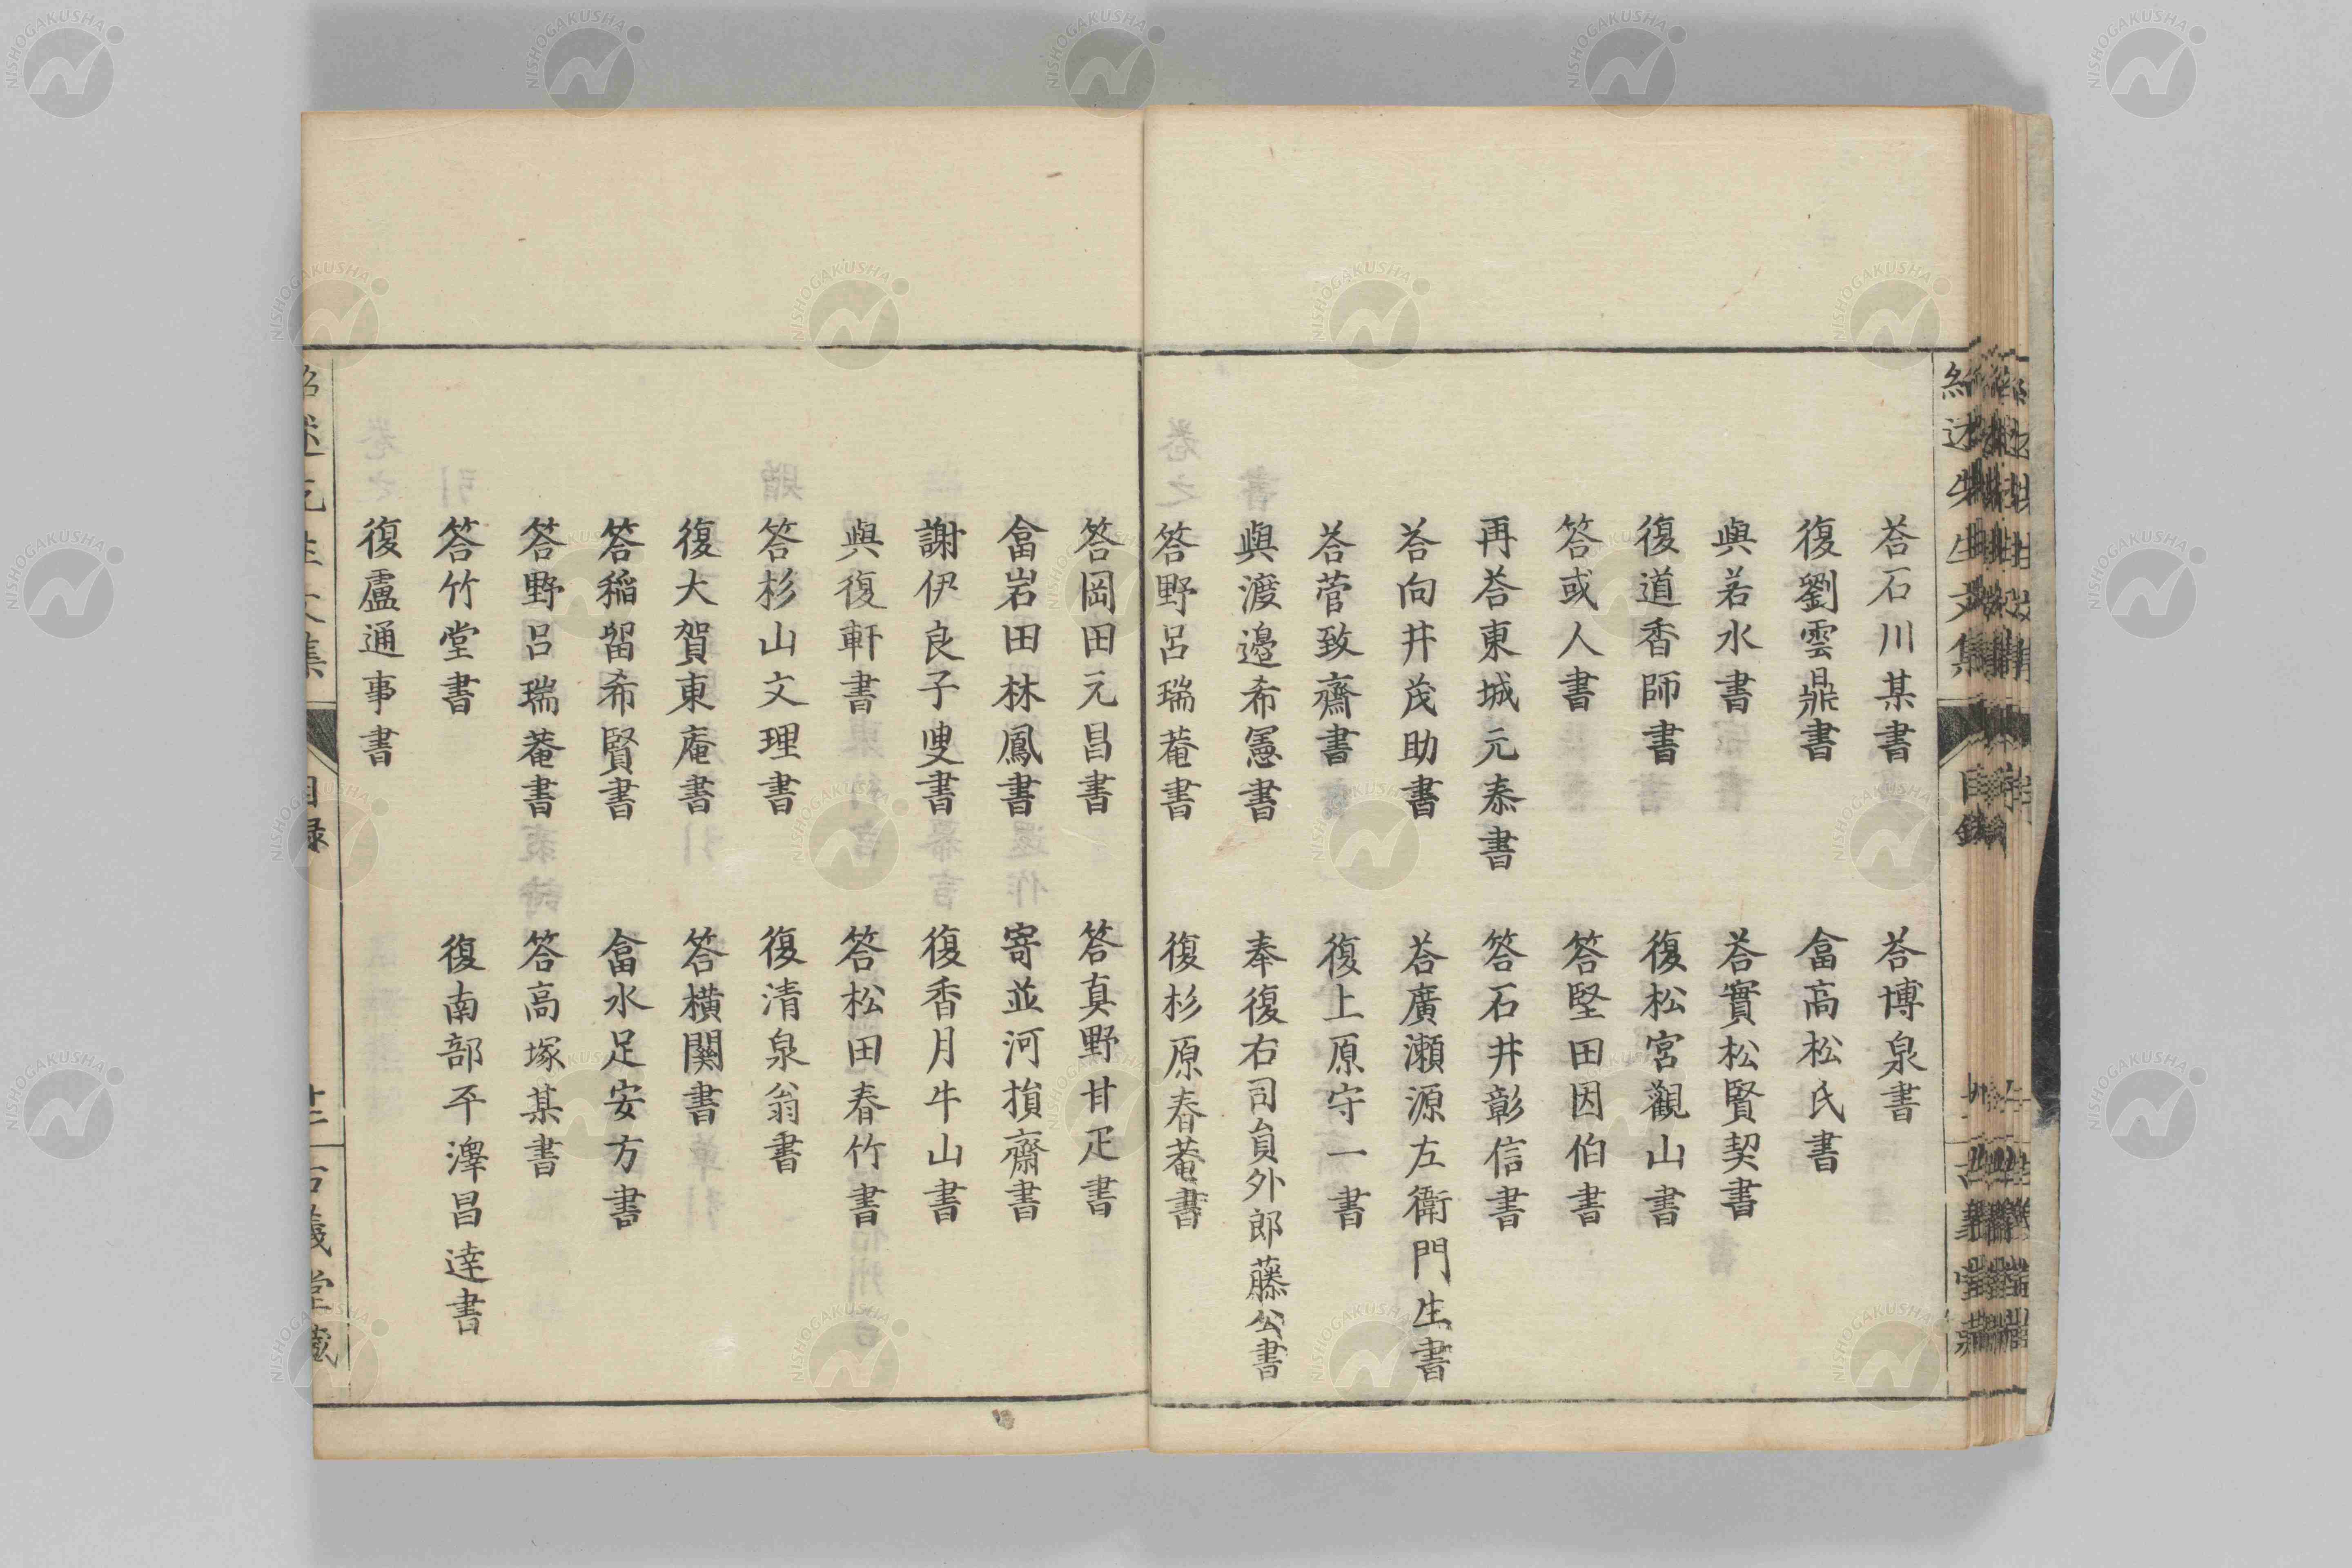 荅石川某書　荅博泉書
復劉雲鼎書　畣高松氏書
與若水書　荅實松賢契書
復道香師書　復松宮觀山書
答或人書　答堅田因伯書
再荅東城元泰書　答石井彰信書
荅向井茂助書　荅廣瀬源左衛門生書
荅菅致齋書　復上原守一書
與渡邉希憲書　奉復右司員外郎藤公書
答野呂瑞菴書　復杉原春菴書
答岡田元昌書　答真野甘疋書
畣岩田林鳳書　寄並河損齋書
謝伊良子叟書　復香月牛山書
與復軒書　答松田春竹書
答杉山文理書　復清泉翁書
復大賀東庵書　答橫関書
答稲留希賢書　畣水足安方書
答野呂瑞菴書　答高塚某書
答竹堂書　復南部平澤昌逹書
復盧通事書
目録
NISHOGAKUSHA